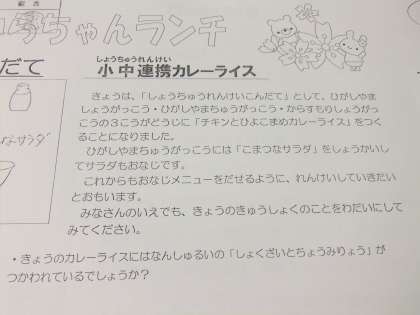 うちゃんランチ
だて
しょうちゅうれんけい
小中連携カレーライス
きょうは、「しょうちゅうれんけいこんだて」として、ひがしやま
しょうがっこう・ひがしやまちゅうがっこう・からすもりしょうがっ
こうの3こうがどうじに「チキンとひよこまめカレーライス」をつく
ることになりました。
ひがしやまちゅうがっこうには「こまつなサラダ」をしょうかいし
てサラダもおなじです。
これからもおなじメニューをだせるように、れんけいしていきたい
とおもいます。
みなさんのいえでも、きょうのきゅうしょくのことをわだいにして
みてください。
なサラダ
・きょうのカレーライスにはなんしゅるいの「しょくざいとちょうみりょう」が
つかわれているでしょうか？